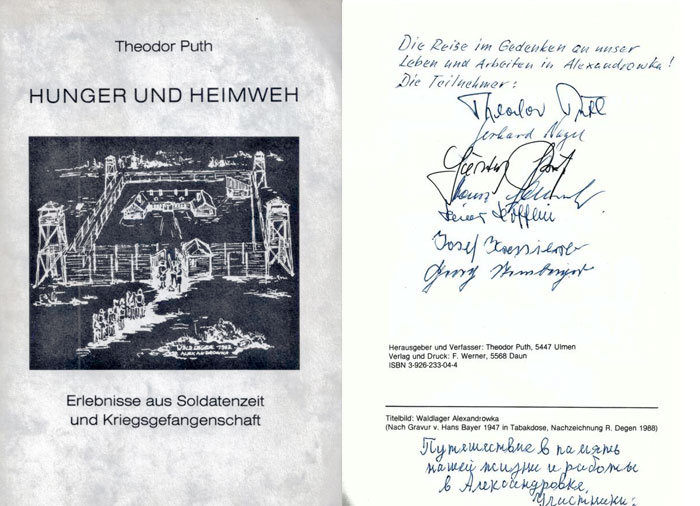 Theodor Puth
HUNGER UND HEIMWEH
WALDLAGER
ALEXANDROWKA
Erlebnisse aus Soldatenzeit
und Kriegsgefangenschaft
Die Reise im Gedenken an unser
Leben und Arbeiten in Alexandrowka!
Die Teilnehmer:
Theodor Puth
Gerhard Nagel
Josef
Georg
Herausgeber und Verfasser: Theodor Puth, 5447 Ulmen
Verlag und Druck: F. Werner, 5568 Daun
ISBN 3-926-233-04-4
Titelbild: Waldlager Alexandrowka
(Nach Gravur v. Hans Bayer 1947 in Tabakdose, Nachzeichnung R. Degen 1988)
Путешествие в память
нашей жизни и работы
в Александровке.
Участники: